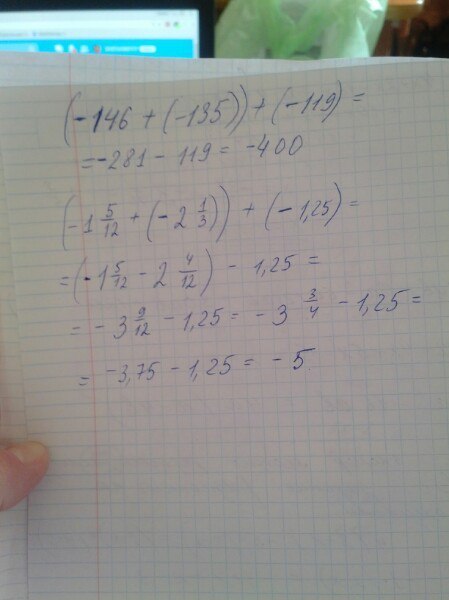 (-146 + (-135)) + (-119) =
= -281 - 119 = -400
(-1 5/12 + (-2 1/3)) + (-1,25) =
= (-1 5/12 - 2 4/12) - 1,25 =
= -3 9/12 - 1,25 = -3 3/4 - 1,25 =
= -3,75 - 1,25 = -5.